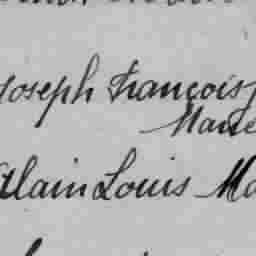 Joseph François
Marie
Alain Louis Ma